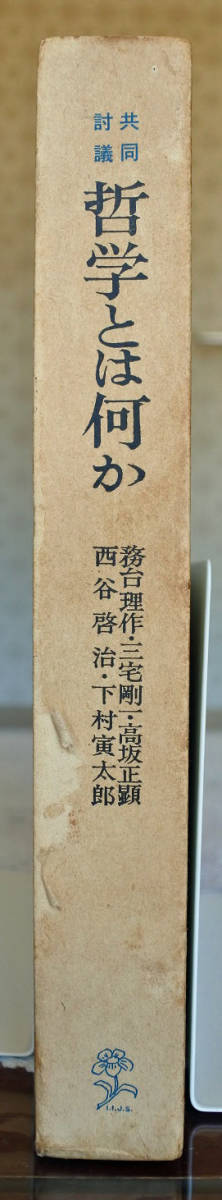 共同
討議
哲学とは何か
務台理作・三宅剛一・高坂正顕
西谷啓治・下村寅太郎
I.I.J.S.